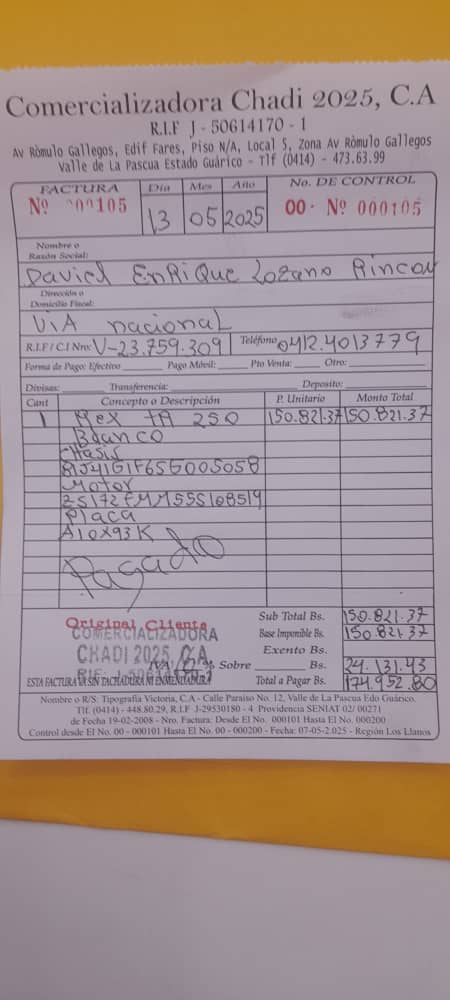 Comercializadora Chadi 2025, C.A
R.I.F J - 50614170 - 1
Av Ròmulo Gallegos, Edif Fares, Piso N/A, Local 5, Zona Av Ròmulo Gallegos
Valle de La Pascua Estado Guárico - Tlf (0414) - 473.63.99
FACTURA Día Mes Año No. DE CONTROL
Nº 000105 13 05 2025 00 - Nº 000105
Nombre o
Razón Social:
David EnRiQue Lozano Rincon
Dirección o
Domicilio Fiscal:
ViA nacional
R.I.F / C.I Nro: V-23.759.309 Teléfono 0412.4013779
Forma de Pago: Efectivo Pago Móvil: Pto Venta: Otro:
Divisas: Transferencia: Deposito:
Cant Concepto o Descripción P. Unitario Monto Total
1 Mex TA 250 150.821.37 150.821.37
Blanco
Chasis
Motor
Placa
A10X93K
Pagado
Original Cliente
COMERCIALIZADORA
CHADI 2025, C.A
Sub Total Bs. 150.821.37
Base Imponible Bs. 150.821.37
Exento Bs.
% Sobre Bs. 24.131.43
ESTA FACTURA VA SIN TACHADURA NI ENMENDADURA Total a Pagar Bs. 174.952.80
Nombre o R/S: Tipografía Victoria, C.A - Calle Paraíso No. 12, Valle de La Pascua Edo Guárico.
Tlf. (0414) - 448.80.29, R.I.F J-29530180 - 4 Providencia SENIAT 02/ 00271
de Fecha 19-02-2008 - Nro. Factura: Desde El No. 000101 Hasta El No. 000200
Control desde El No. 00 - 000101 Hasta El No. 00 - 000200 - Fecha: 07-05-2.025 - Región Los Llanos